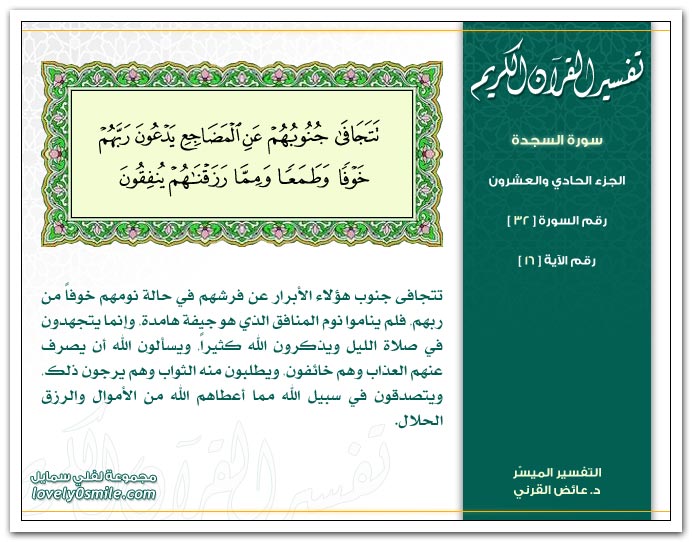 تفسير القرآن الكريم
سورة السجدة
الجزء الحادي والعشرون
رقم السورة [ ٣٢ ]
رقم الآية [ ١٦ ]
تَتَجَافَىٰ جُنُوبُهُمْ عَنِ ٱلْمَضَاجِعِ يَدْعُونَ رَبَّهُمْ
خَوْفًا وَطَمَعًا وَمِمَّا رَزَقْنَٰهُمْ يُنفِقُونَ
تتجافى جنوب هؤلاء الأبرار عن فرشهم في حالة نومهم خوفاً من
ربهم، فلم يناموا نوم المنافق الذي هو جيفة هامدة، وإنما يتجهدون
في صلاة الليل ويذكرون الله كثيراً، ويسألون الله أن يصرف
عنهم العذاب وهم خائفون، ويطلبون منه الثواب وهم يرجون ذلك،
ويتصدقون في سبيل الله مما أعطاهم الله من الأموال والرزق
الحلال.
تفسير القرآن الكريم
التفسير الميسّر
د. عائض القرني
مجموعة لفلي سمايل
lovely0smile.com